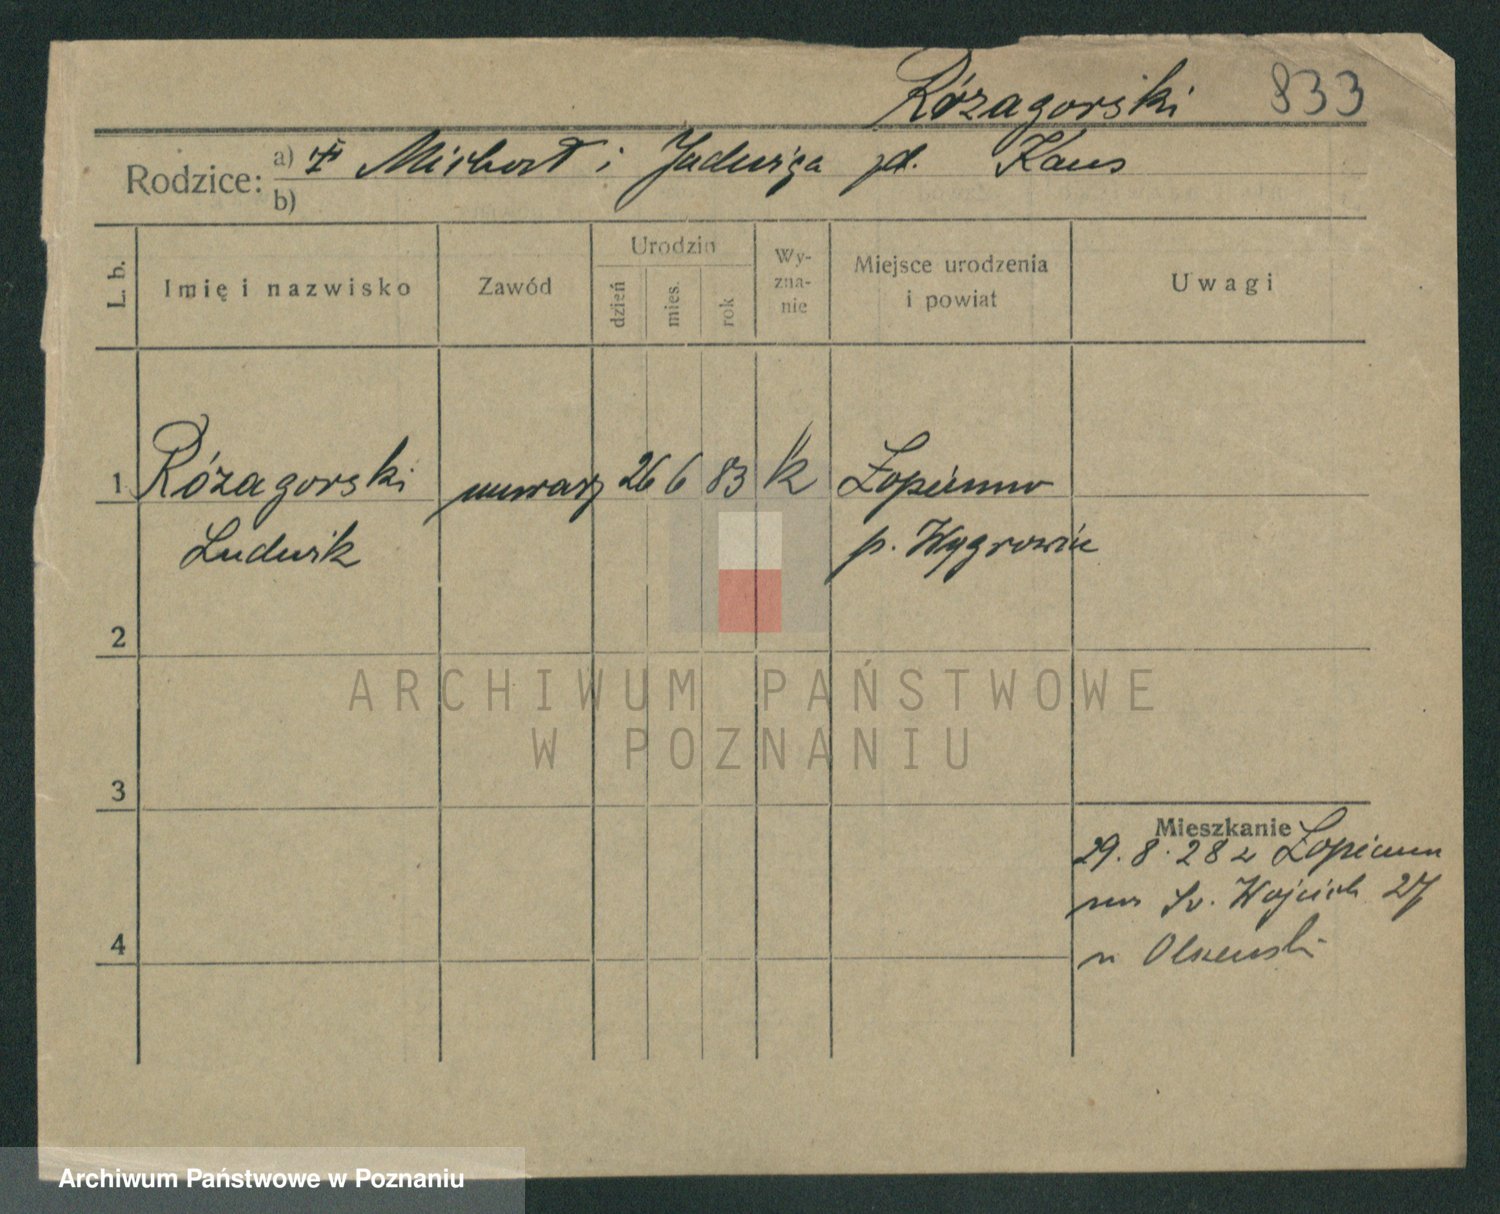 Rózagorski 833
Rodzice: a) Michał i Jadwiga Kaus
b)
L. b. Imię i nazwisko Zawód Urodzin dzień mies. rok Wy-zna-nie Miejsce urodzenia i powiat Uwagi
1 Rózagorski murarz 26 6 83 k Łopienno
Ludwik p. Wągrowiec
2
ARCHIWUM PAŃSTWOWE
W POZNANIU
3
Mieszkanie
29. 8. 28 z Łopienna
na Św. Wojciech 27
u Olszewski
4
Archiwum Państwowe w Poznaniu